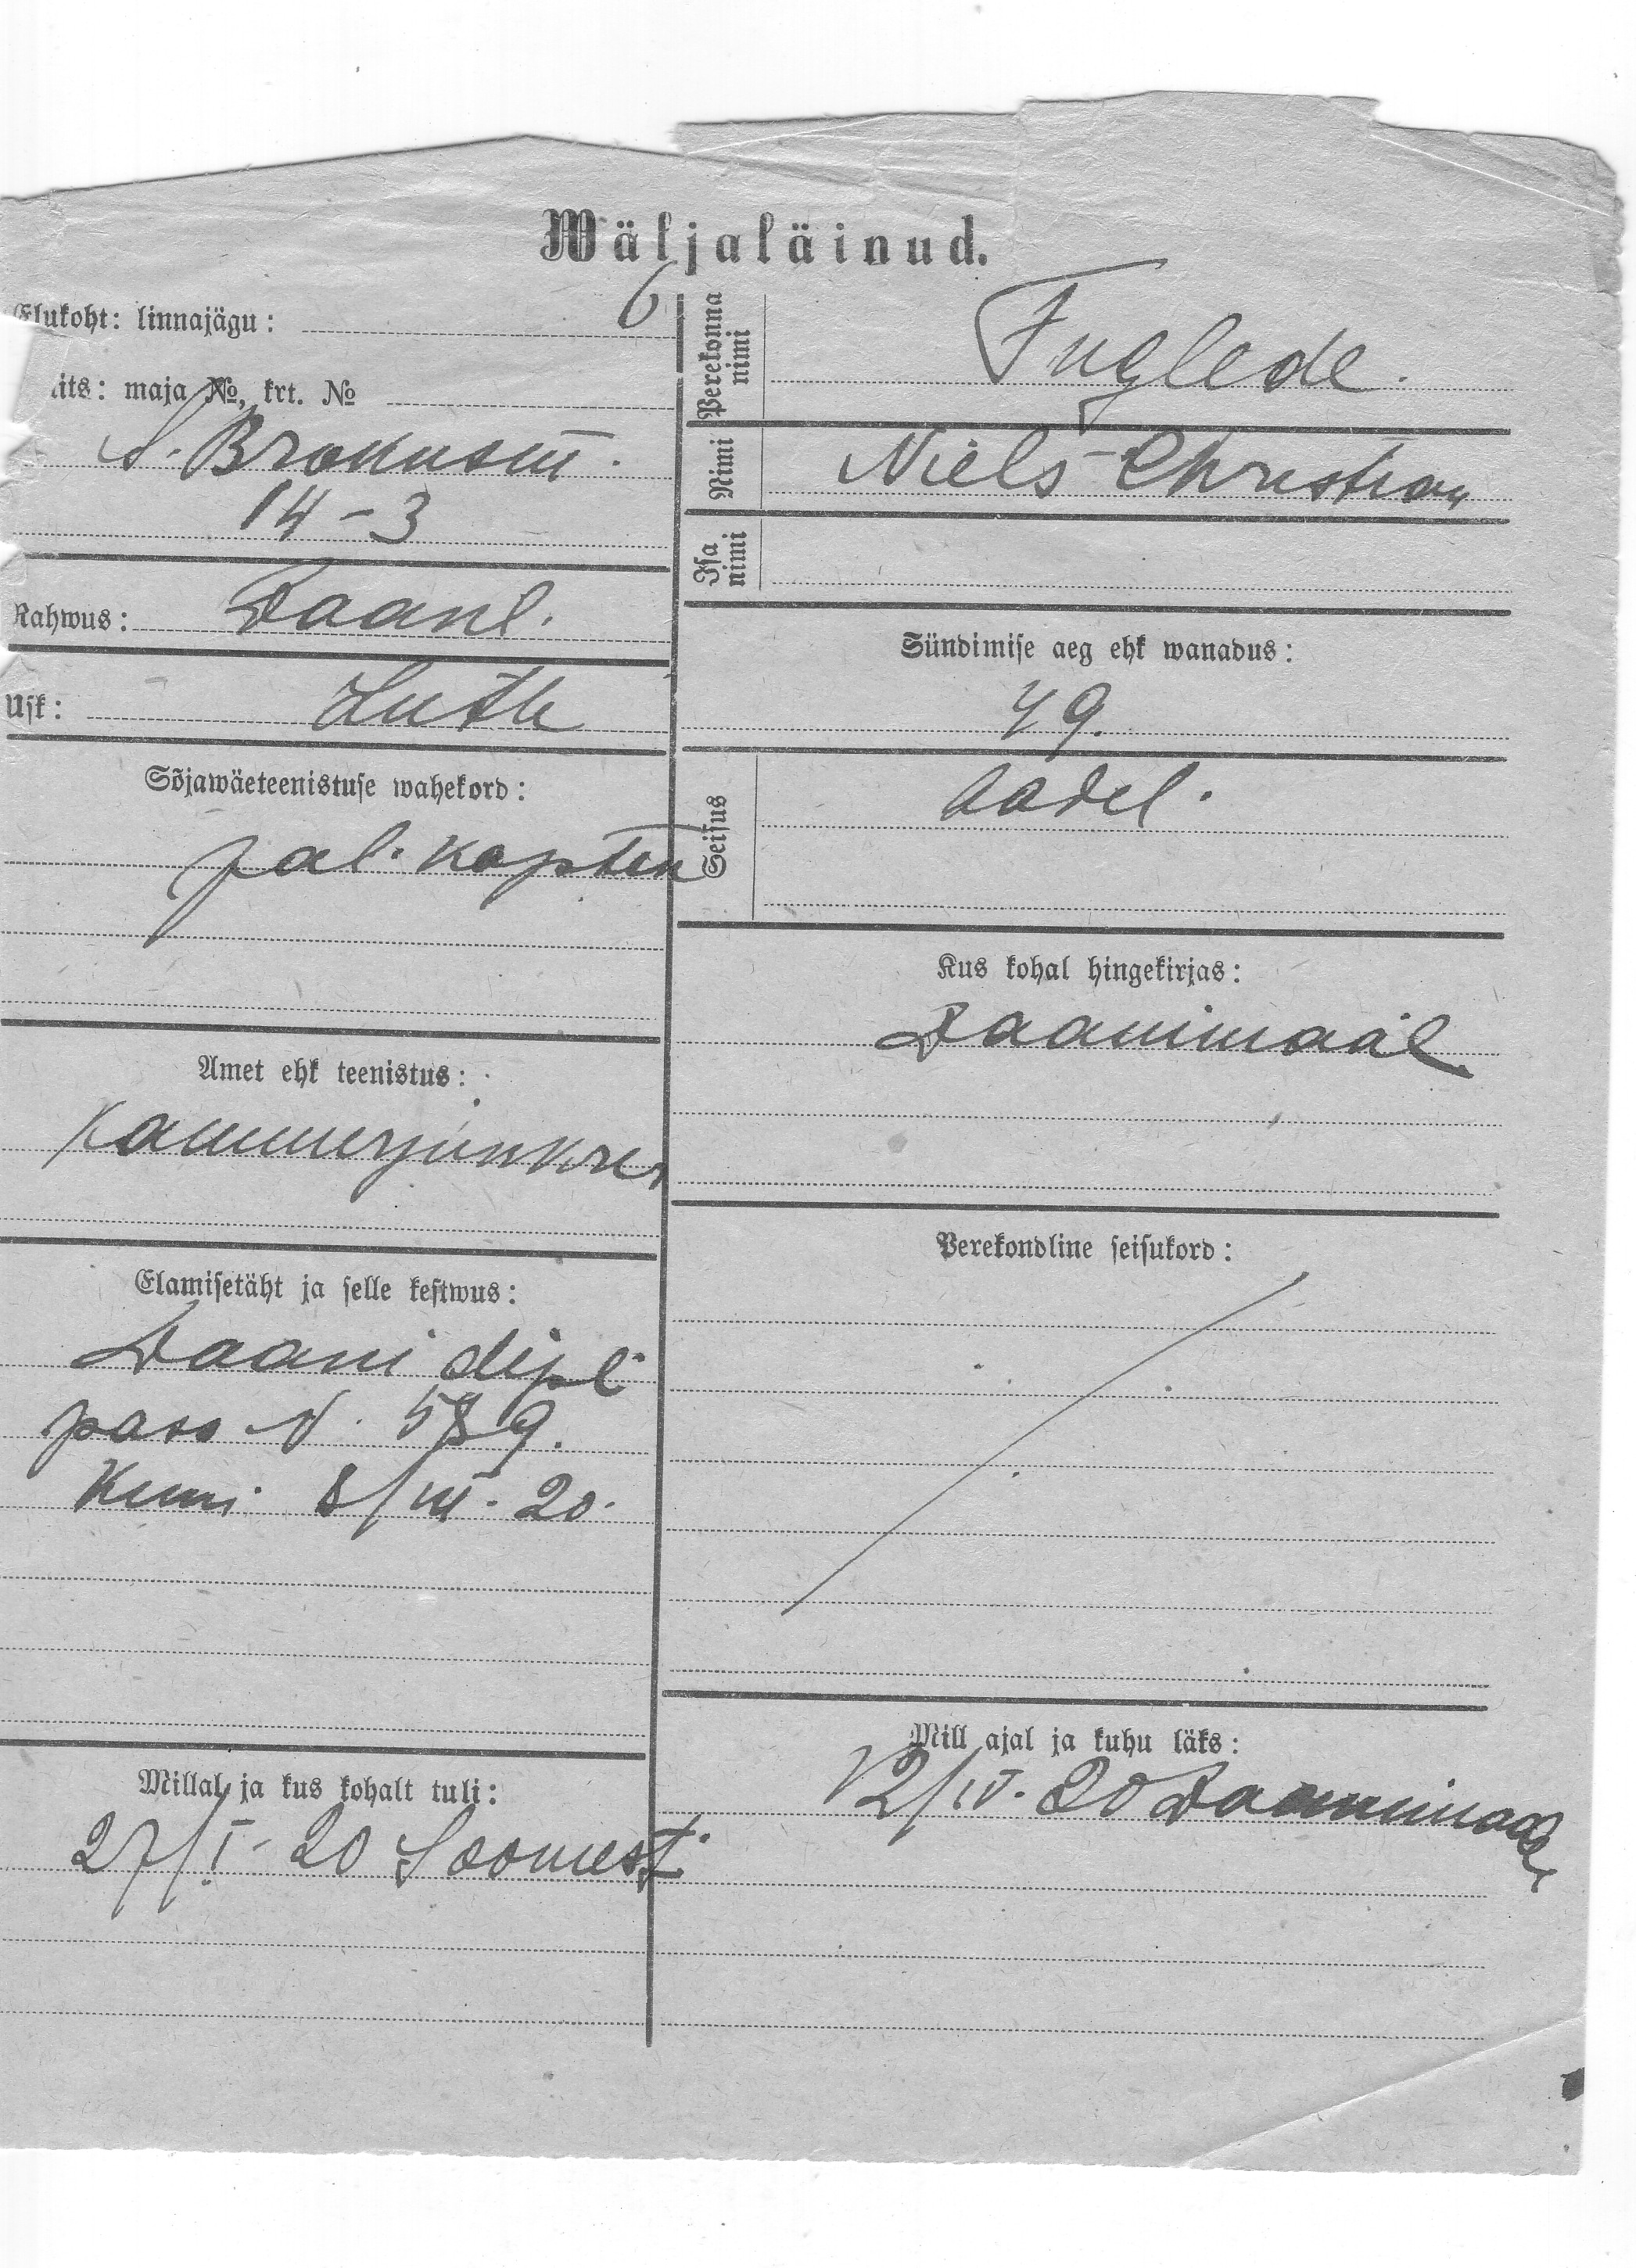 Wäljaläinud.
Elukoht: linnajägu: 6
its: maja №, krt. №
14-3
Rahwus: Daanl.
Usk: Luth
Sõjawäeteenistuse wahekord:
pal. kapten
Amet ehk teenistus:
Kammerjunker
Elamisetäht ja selle kestwus:
Daani dipl
pass N. 589.
Kuni 8/III. 20.
Millal ja kus kohalt tuli:
27/I - 20 Soomest.
Perekonna nimi
Fuglede.
Nimi
Niels-Christian
Isa nimi
Sündimise aeg ehk wanadus:
49.
Seisus
Aadel.
Kus kohal hingekirjas:
Daanimaal
Perekondline seisukord:
Mill ajal ja kuhu läks:
12/IV. 20 Daanimaale